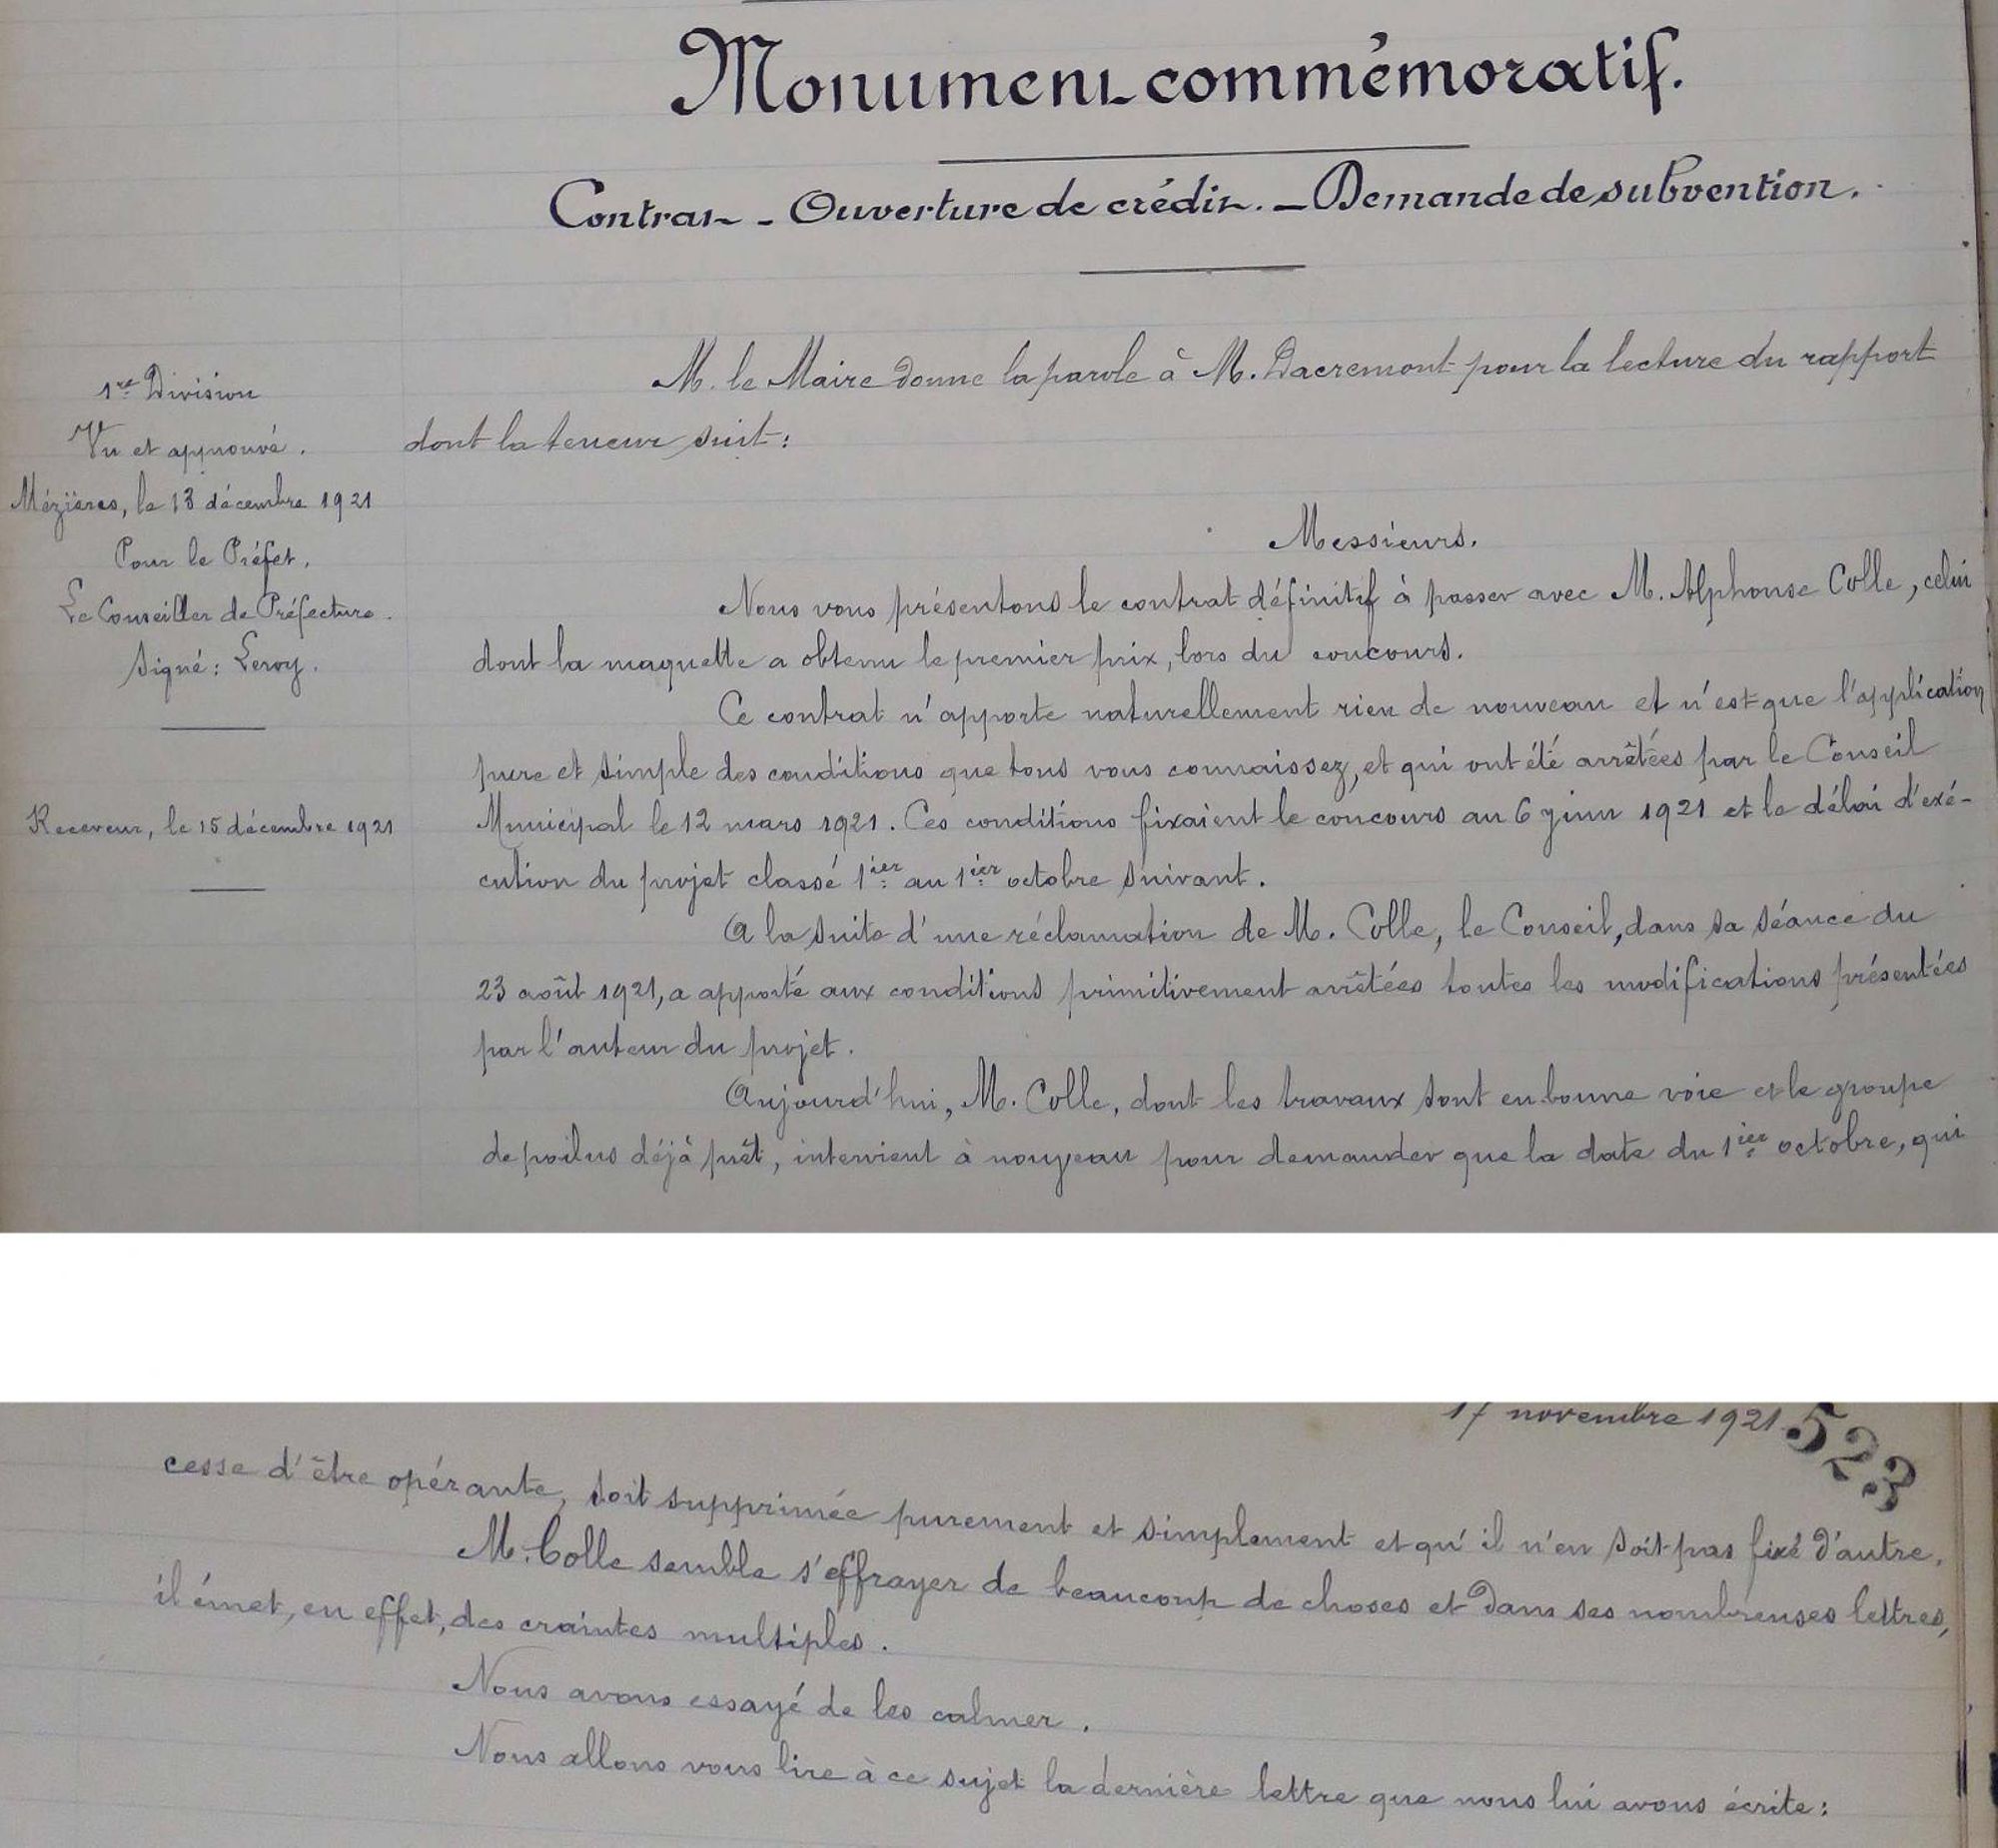 Monument commémoratif.
Contrat - Ouverture de crédit. - Demande de subvention.
M. le Maire donne la parole à M. Dacremont pour la lecture du rapport
dont la teneur suit :
1re Division
Vu et approuvé.
Mézières, le 13 décembre 1921
Pour le Préfet,
Le Conseiller de Préfecture.
Signé : Leroy.
Receveur, le 15 décembre 1921
Messieurs.
Nous vous présentons le contrat définitif à passer avec M. Alphonse Colle, celui
dont la maquette a obtenu le premier prix, lors du concours.
Ce contrat n'apporte naturellement rien de nouveau et n'est que l'application
pure et simple des conditions que tous vous connaissez, et qui ont été arrêtées par le Conseil
Municipal le 12 mars 1921. Ces conditions fixaient le concours au 6 juin 1921 et le délai d'exé-
cution du projet classé 1ier au 1ier octobre suivant.
A la suite d'une réclamation de M. Colle, le Conseil, dans sa séance du
23 août 1921, a apporté aux conditions primitivement arrêtées toutes les modifications présentées
par l'auteur du projet.
Aujourd'hui, M. Colle, dont les travaux sont en bonne voie et le groupe
de poilus déjà prêt, intervient à nouveau pour demander que la date du 1ier octobre, qui
17 novembre 1921
523
cesse d'être opérante, soit supprimée purement et simplement et qu'il n'en soit pas fixé d'autre.
M. Colle semble s'effrayer de beaucoup de choses et dans ses nombreuses lettres,
il émet, en effet, des craintes multiples.
Nous avons essayé de les calmer.
Nous allons vous lire à ce sujet la dernière lettre que nous lui avons écrite :